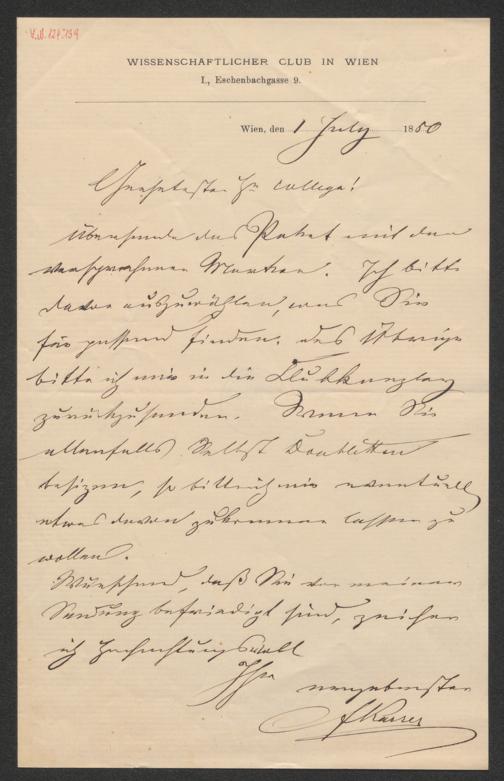 WISSENSCHAFTLICHER CLUB IN WIEN
I., Eschenbachgasse 9.
Wien, den 1 July 1880
Geehrtester Hr College!
Übersende das Paket mit den
versprochenen Marken. Ich bitte
davon auszuwählen, was Sie
für passend finden. Das Übrige
bitte ich mir in die Clubkanzley
zurückzusenden. Wenn Sie
allenfalls selbst Doubletten
besizen, so bitte ich mir eventuell
etwas davon zukommen lassen zu
wollen.
Wünschend, daß Sie von meiner
Sendung befriedigt sind, zeichne
ich hochachtungsvoll
Ihr
ergebenster